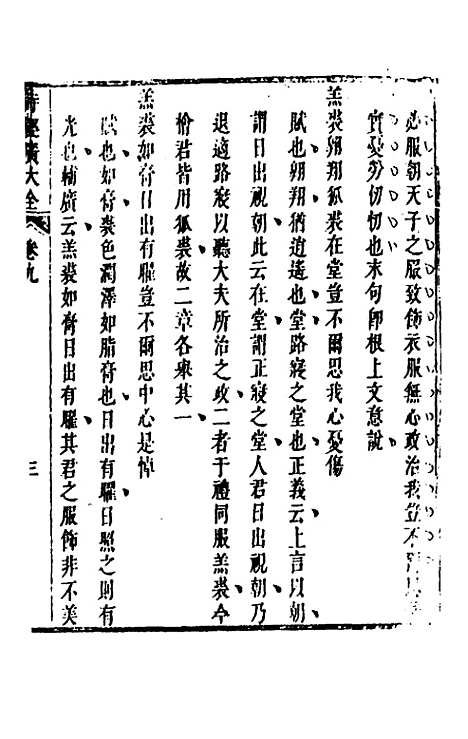 必服朝天子之服致飾衣服無心政治我豈不
實憂勞忉忉也末句即根上文意說
羔裘翱翔狐裘在堂豈不爾思我心憂傷
賦也翱翔猶逍遙也堂路寢之堂也正義云上言以朝
謂日出視朝此云在堂謂正寢之堂人君日出視朝乃
退適路寢以聽大夫所治之政二者于禮同服羔裘今
檜君皆用狐裘故二章各舉其一
羔裘如膏日出有曜豈不爾思中心是悼
賦也如膏裘色潤澤如脂膏也日出有曜日照之則有
光也輔廣云羔裘如膏日出有曜其君之服飾非不美
詩經廣大全 卷九 三